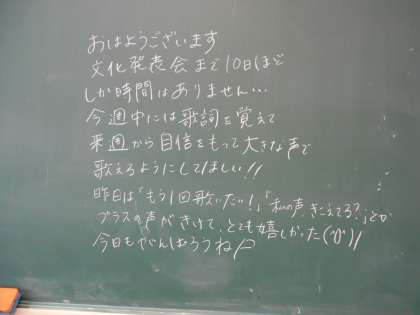 おはようございます
文化発表会まで10日ほど
しか時間はありません…
今週中には歌詞を覚えて
来週から自信をもって大きな声で
歌えるようにしてほしい!!
昨日は「もう1回歌いたい!」「私の声、きこえてる?」とか
プラスの声がきけて、とても嬉しかった(^0^)/
今日もがんばろうね